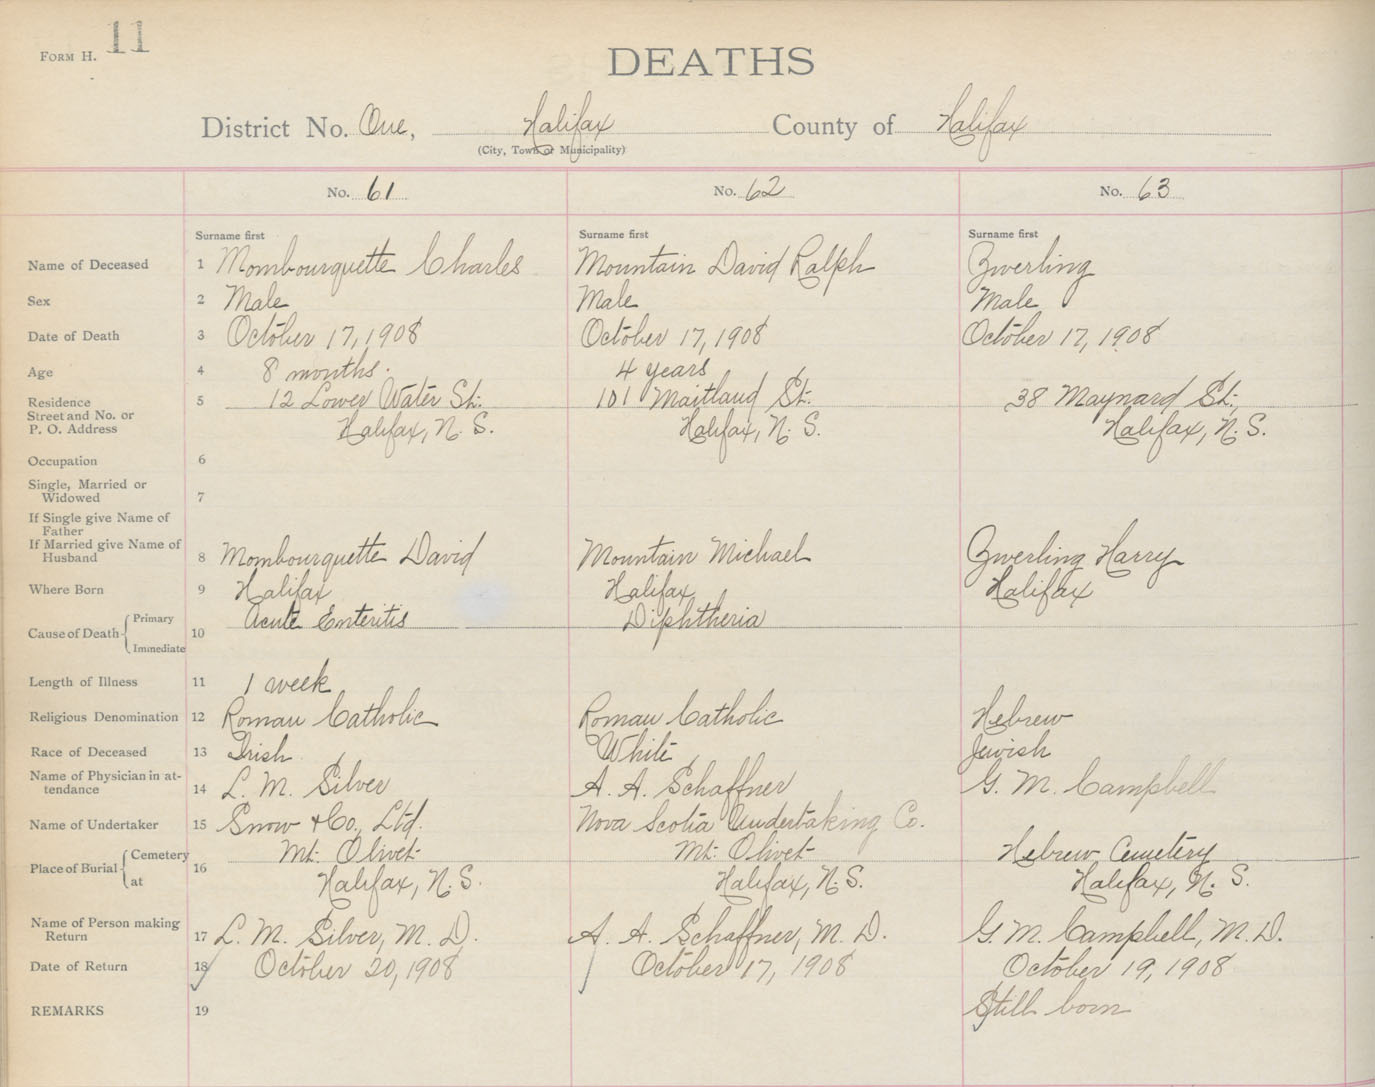 Form H. 11
DEATHS
District No. One, Halifax County of Halifax
(City, Town or Municipality)
No. 61 No. 62 No. 63
Surname first Surname first Surname first
Name of Deceased 1 Mombourquette Charles Mountain David Ralph Zwerling
Sex 2 Male Male Male
Date of Death 3 October 17, 1908 October 17, 1908 October 17, 1908
Age 4 8 months. 4 years
Residence 5 12 Lower Water St. 101 Maitland St. 38 Maynard St.,
Street and No. or
P. O. Address Halifax, N. S. Halifax, N. S. Halifax, N. S.
Occupation 6
Single, Married or
Widowed 7
If Single give Name of
Father
If Married give Name of
Husband 8 Mombourquette David Mountain Michael Zwerling Harry
Where Born 9 Halifax Halifax Halifax
Cause of Death Primary 10 Acute Enteritis Diphtheria
Immediate
Length of Illness 11 1 week
Religious Denomination 12 Roman Catholic Roman Catholic Hebrew
Race of Deceased 13 Irish White Jewish
Name of Physician in at-
tendance 14 L. M. Silver A. A. Schaffner G. M. Campbell
Name of Undertaker 15 Snow & Co., Ltd. Nova Scotia Undertaking Co.
Place of Burial Cemetery 16 Mt. Olivet Mt. Olivet Hebrew Cemetery
at Halifax, N. S. Halifax, N. S. Halifax, N. S.
Name of Person making
Return 17 L. M. Silver, M. D. A. A. Schaffner, M. D. G. M. Campbell, M. D.
Date of Return 18 October 20, 1908 October 17, 1908 October 19, 1908
REMARKS 19 Still born